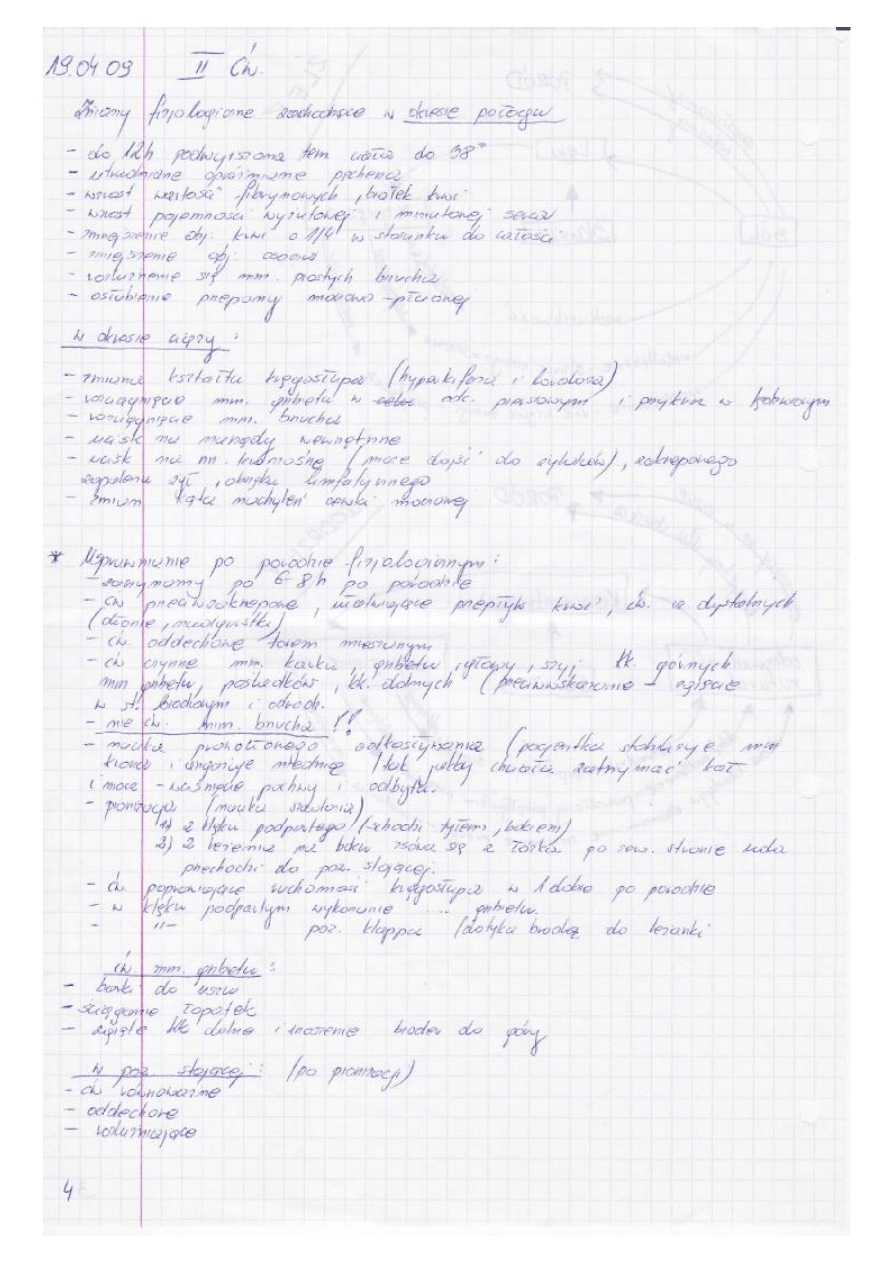 19.04 09 II Ćw.
Zmiany fizjologiczne zachodzące w okresie połogu
- do 12h podwyższona tem ciała do 38°
- utrudnione opróżnianie pęcherza
- wzrost wartości fibrynowych, białek krwi
- wzrost pojemności wyrzutowej i minutowej serca
- zmniejszenie obj. krwi o 1/4 w stosunku do całości
- zmniejszenie obj. osocza
- rozluźnienie się mm. prostych brzucha
- osłabienie przepony moczowo-płciowej
w okresie ciąży :
- zmiana kształtu kręgosłupa (hyperkifoza i lordoza)
- rozciągnięcie mm. grzbietu w odc. piersiowym i przykurcz w lędźwiowym
- rozciągnięcie mm. brzucha
- ucisk na narządy wewnętrzne
- ucisk na nn. krwionośne (może dojść do żylaków), zakrzepowego
zapalenia żył, obrzęku limfatycznego
- zmiana kąta nachyleń cewki moczowej
* Usprawnianie po porodzie fizjologicznym :
- zaczynamy po 6-8h po porodzie
- ćw przeciwzakrzepowe, ułatwiające przepływ krwi, ćw. cz dystalnych
(dłonie, nadgarstki)
- ćw. oddechowe torem mieszanym
- ćw czynne mm. karku, grzbietu, głowy, szyj kk. górnych
mm grzbietu, pośladków, kk. dolnych (przeciwwskazanie - zgięcie
w st. biodrowym i odwodz.
- nie ćw. mm. brzucha !!
- nauka prawidłowego odkasływania (pacjentka stabilizuje mm
krocza i angażuje miednicę (tak jakby chciała zatrzymać kał
i mocz - zwieranie pochwy i odbytu.
- pionizacja (nauka siadania)
1) z klęku podpartego (schodzi tyłem, bokiem)
2) z leżenia na boku zsówa się z łóżka po zew. stronie uda
przechodzi do poz. stojącej.
- ćw poprawiające ruchomość kręgosłupa w 1 dobie po porodzie
- w klęku podpartym wykonanie ... grzbietu.
- -"- poz. klappa (dotyka brodą do leżanki
ćw. mm. grzbietu :
- barki do uszu
- ściąganie łopatek
- zgięte kk dolne i unoszenie bioder do góry
w poz. stojącej : (po pionizacji)
- ćw równoważne
- oddechowe
- rozluźniające
4